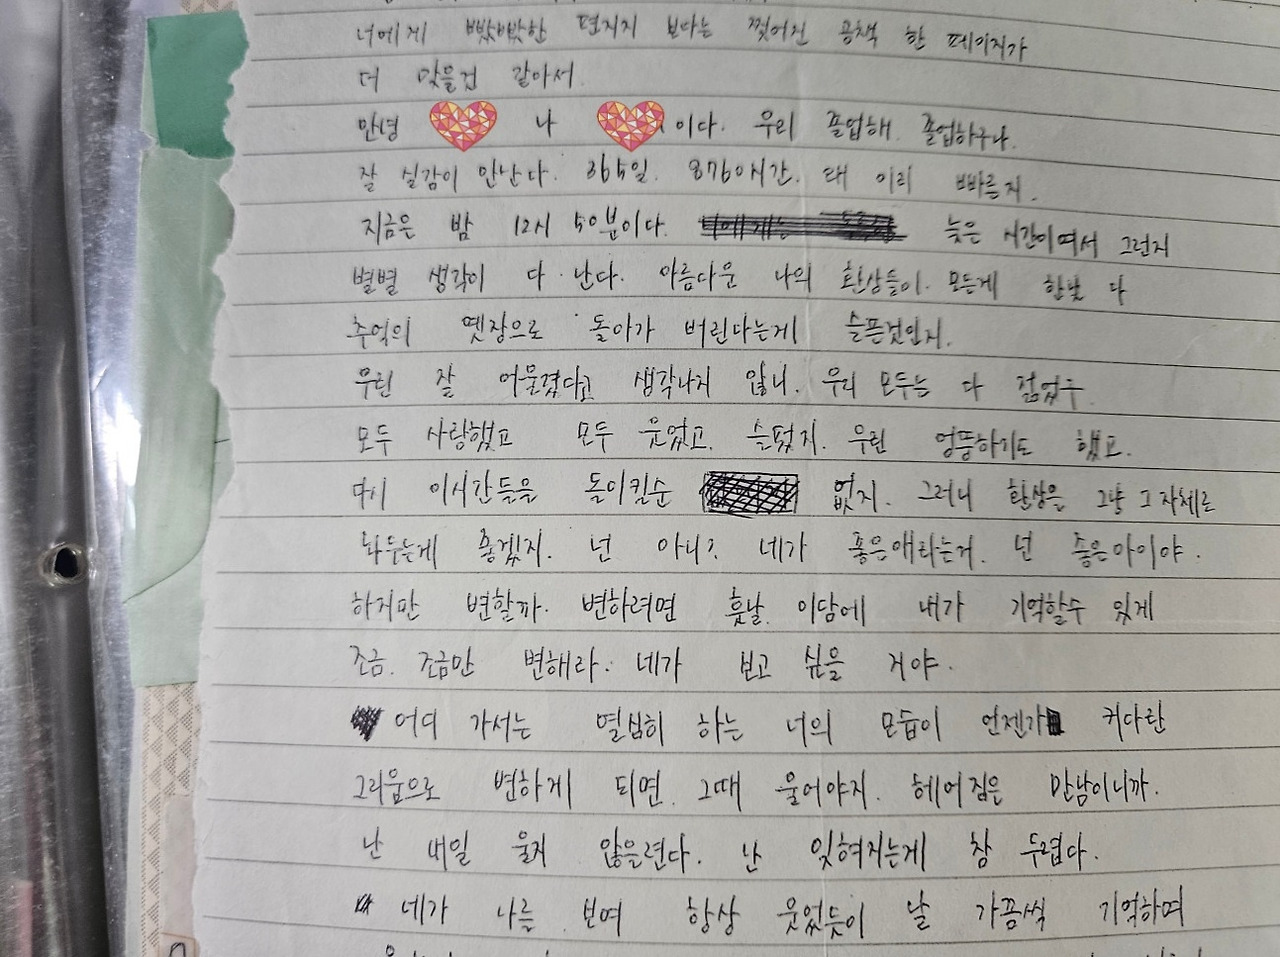 너에게 빳빳한 편지지 보다는 찢어진 공책 한 페이지가
더 맞을것 같아서.
안녕 나 이다. 우리 졸업해. 졸업하구나.
잘 실감이 안난다. 365일. 8760시간. 왜 이리 빠른지.
지금은 밤 12시 50분이다. 늦은 시간이여서 그런지
별별 생각이 다 난다. 아름다운 나의 환상들이. 모든게 한낱 다
추억의 옛장으로 돌아가 버린다는게 슬픈것인지.
우린 잘 어울렸다고 생각나지 않니. 우리 모두는 다 젊었구
모두 사랑했고 모두 웃었고. 슬펐지. 우린 엉뚱하기도 했고.
다시 이시간들을 돌이킬순 없지. 그러니 환상은 그냥 그 자체로
놔두는게 좋겠지. 넌 아니? 네가 좋은애라는거. 넌 좋은아이야.
하지만 변할까. 변하려면 훗날 이담에 내가 기억할수 있게
조금. 조금만 변해라. 네가 보고 싶을 거야.
어디 가서는 열심히 하는 너의 모습이 언젠가 커다란
그리움으로 변하게 되면 그때 울어야지. 헤어짐은 만남이니까.
난 내일 울지 않을련다. 난 잊혀지는게 참 두렵다.
네가 나를 보며 항상 웃었듯이 날 가끔씩 기억하며